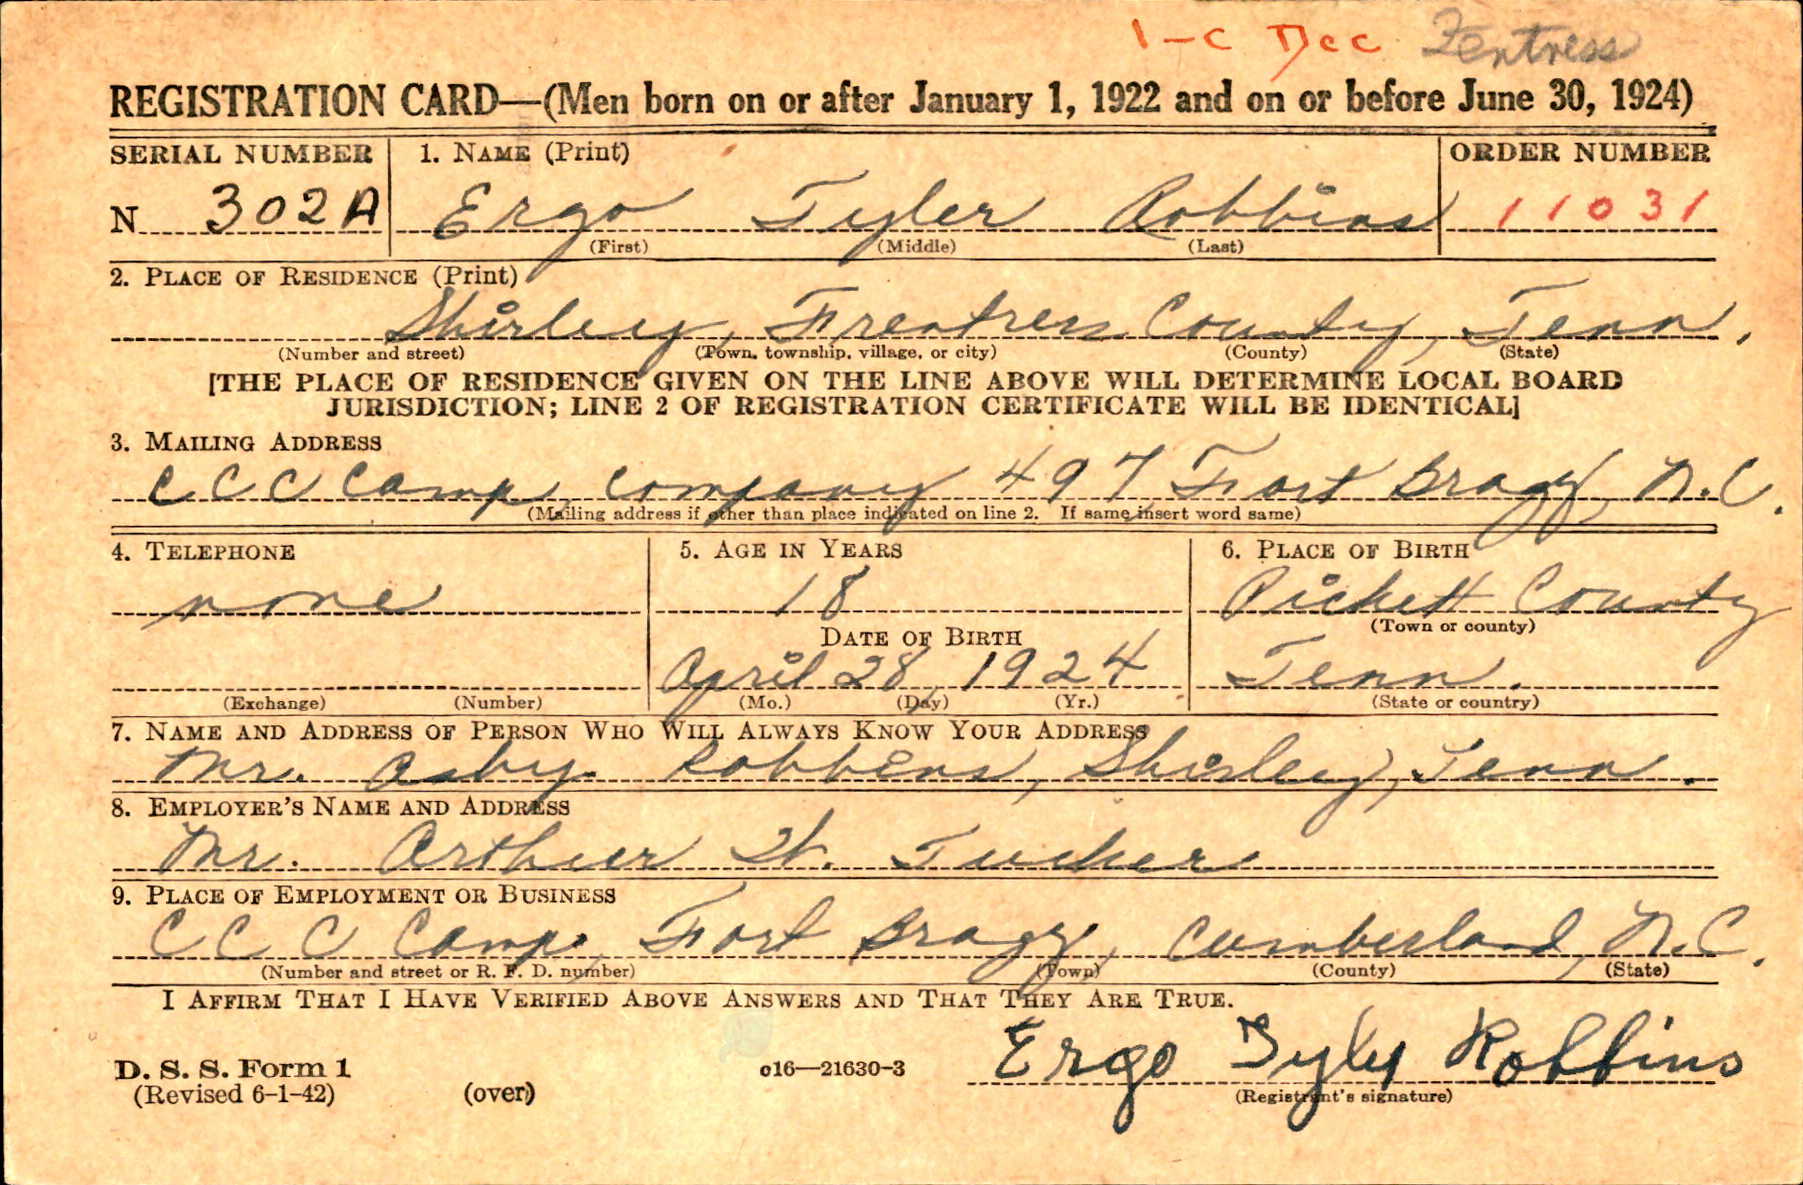 1-C Dec Fentress
REGISTRATION CARD—(Men born on or after January 1, 1922 and on or before June 30, 1924)
SERIAL NUMBER 1. NAME (Print) ORDER NUMBER
N 302A Ergo Tyler Robbins 11031
(First) (Middle) (Last)
2. PLACE OF RESIDENCE (Print)
Shirley, Frentress County, Tenn.
(Number and street) (Town, township, village, or city) (County) (State)
[THE PLACE OF RESIDENCE GIVEN ON THE LINE ABOVE WILL DETERMINE LOCAL BOARD
JURISDICTION; LINE 2 OF REGISTRATION CERTIFICATE WILL BE IDENTICAL]
3. MAILING ADDRESS
CCC Camp, Company 497 Fort Bragg, N.C.
(Mailing address if other than place indicated on line 2. If same insert word same)
4. TELEPHONE 5. AGE IN YEARS 6. PLACE OF BIRTH
none 18 Pickett County
DATE OF BIRTH (Town or county)
April 28, 1924 Tenn.
(Exchange) (Number) (Mo.) (Day) (Yr.) (State or country)
7. NAME AND ADDRESS OF PERSON WHO WILL ALWAYS KNOW YOUR ADDRESS
Mr. Asby Robbins, Shirley, Tenn.
8. EMPLOYER'S NAME AND ADDRESS
Mr. Arthur W. Tucker
9. PLACE OF EMPLOYMENT OR BUSINESS
CCC Camp, Fort Bragg, Cumberland, N.C.
(Number and street or R. F. D. number) (Town) (County) (State)
I AFFIRM THAT I HAVE VERIFIED ABOVE ANSWERS AND THAT THEY ARE TRUE.
D. S. S. Form 1 c16—21630-3 Ergo Tyler Robbins
(Revised 6-1-42) (over) (Registrant's signature)